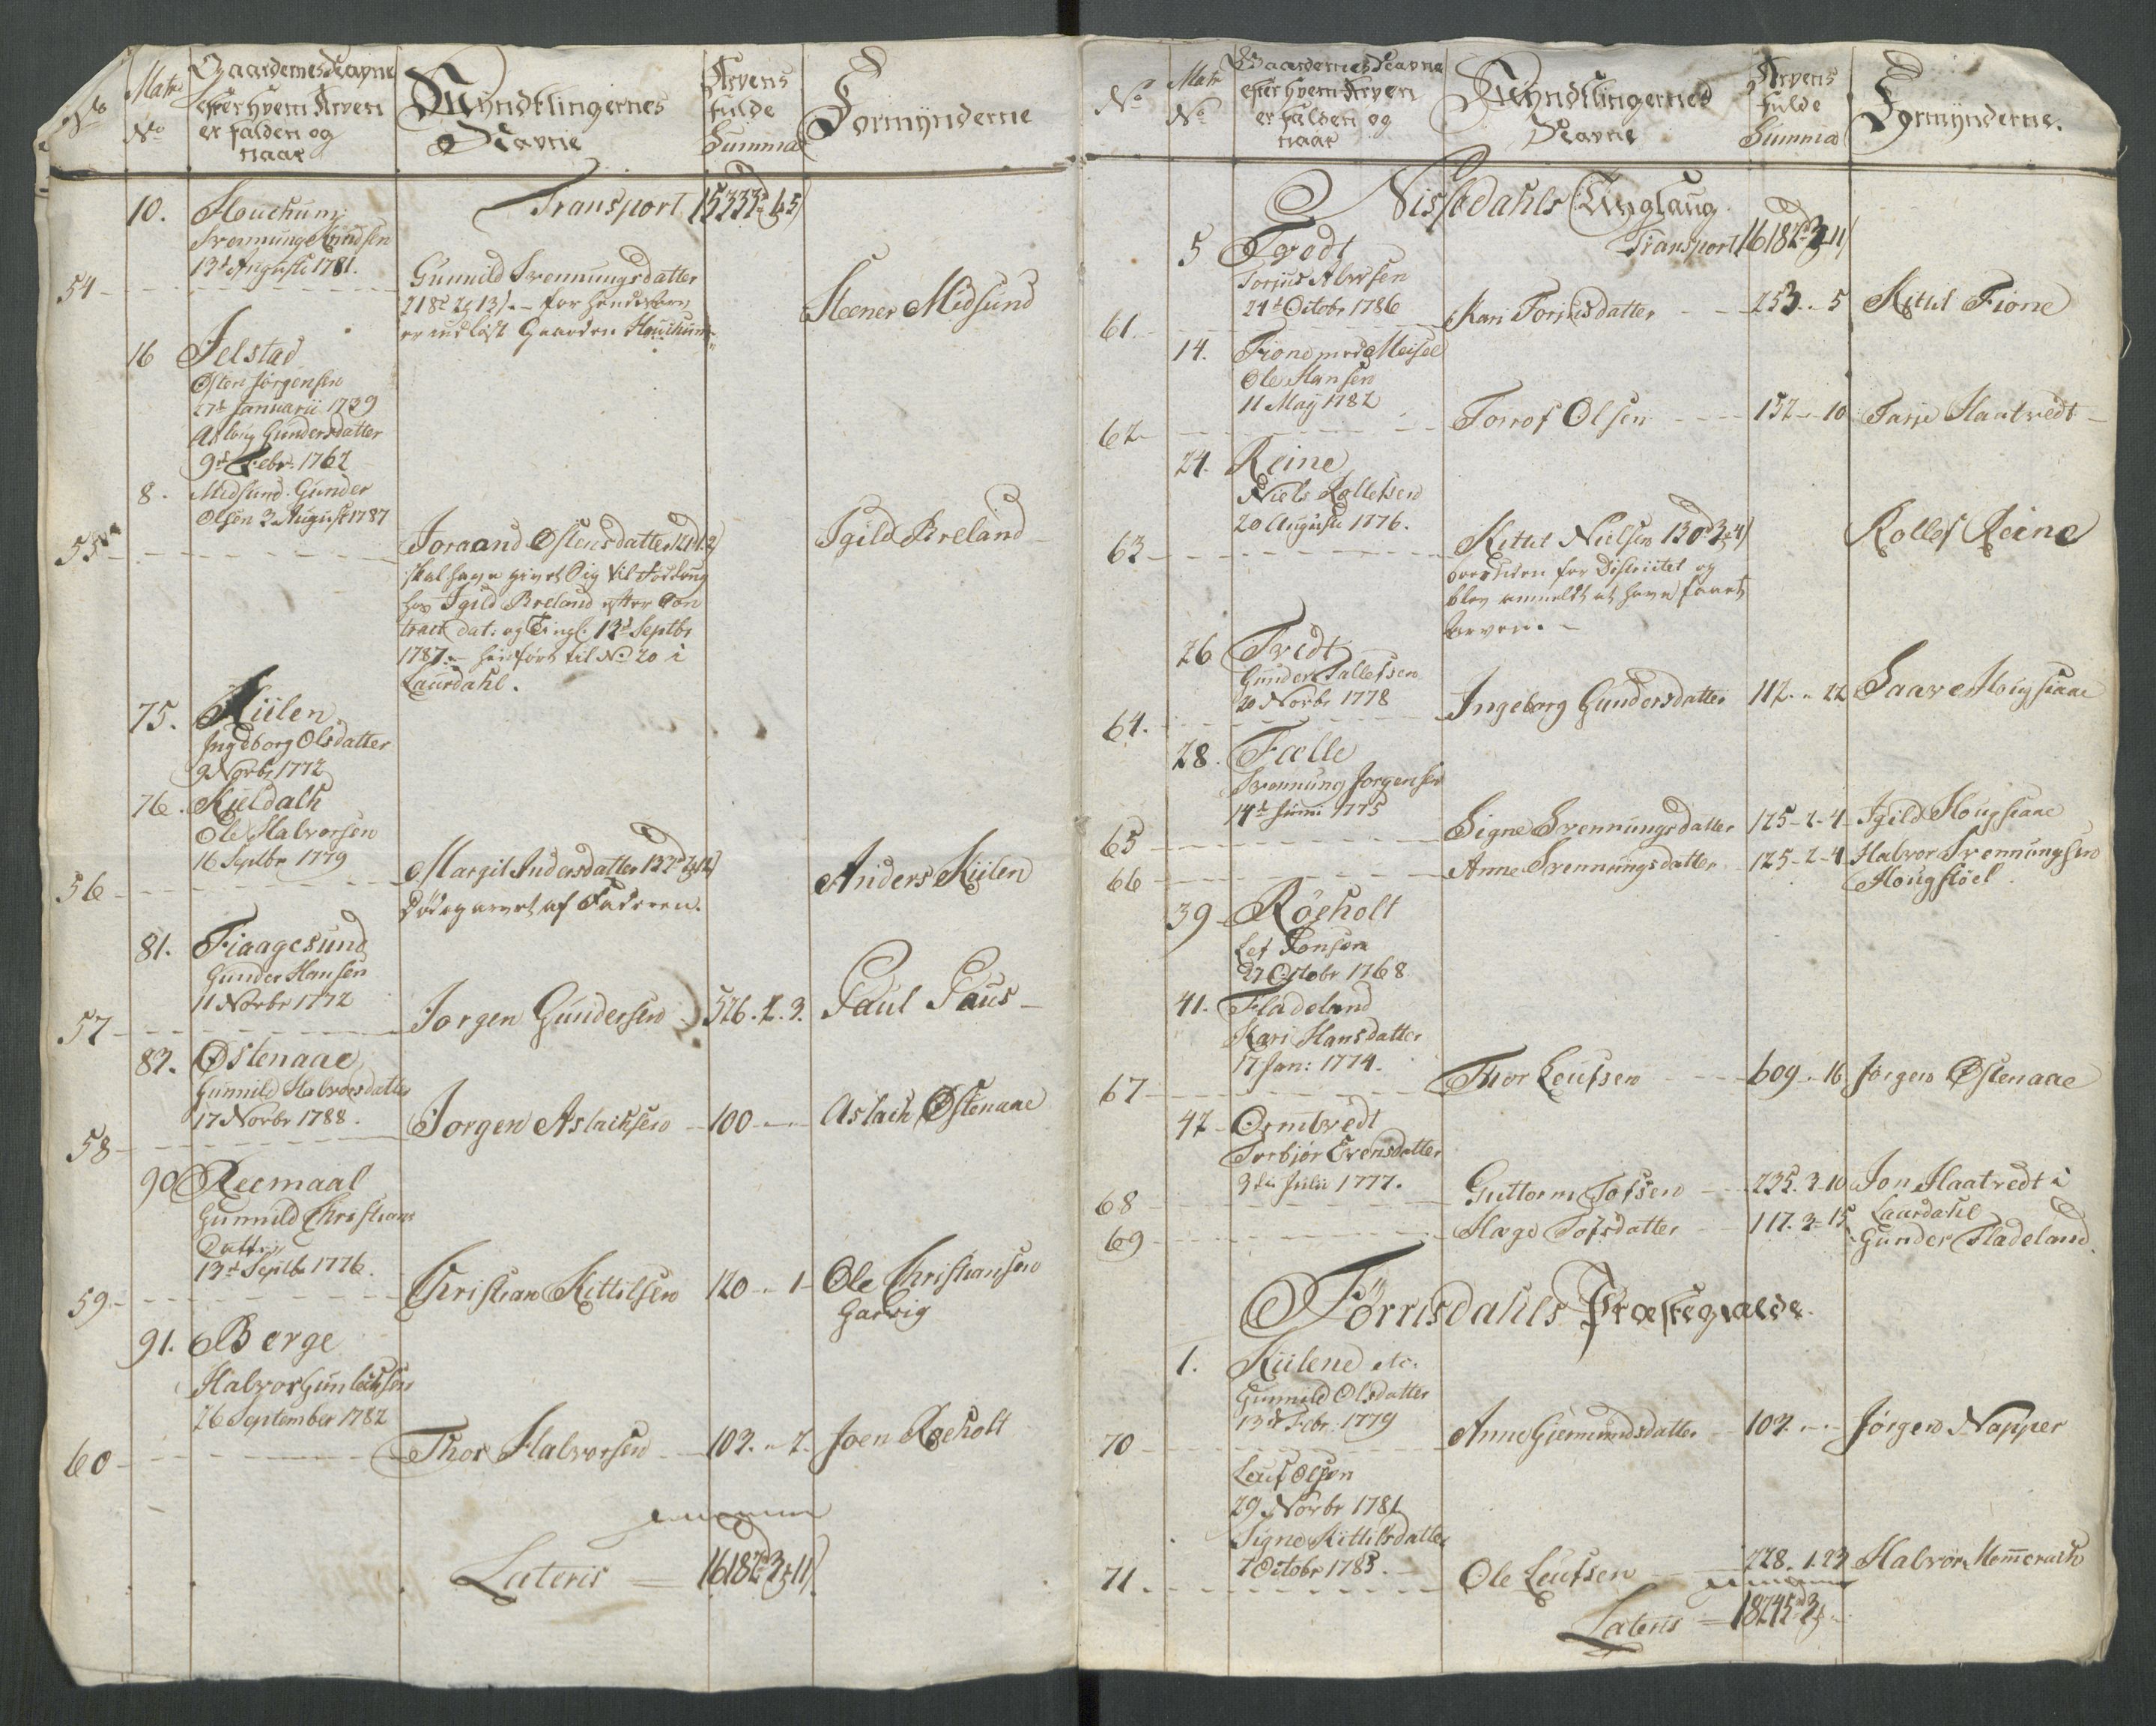 No
Matr
No
Gaardernes Navne
efter hvem Arven
er falden og
naar
Myndtlingernes
Navne
Arvens
fulde
Summa
Formynderne
10.
Transport 15333
Svennung Knudsen
13de Augusti 1781.
54
Gunnild Svennungsdatter
er udlagt Gaarden
Steener Midsund
16 Jelstad
Østen Jørgensen
27de Januarii 1739
Asloug Gundersdatter
9de Febr. 1762
8. Midsund. Gunder
Olsen 3 August 1787
55
Joraand Østensdatter
skal have givet sig til
hos Igild Breland efter Con
tract dat: og Tingl: 12te Septbr
1787. henført til No 20 i
Laurdahl.
Igild Breland
75. Kiilen
Ingeborg Olsdatter
9 Novbr 1772
76. Kiildalh
Ole Halvorsen
16 Septbr 1779
56
Margit Andersdatter
Død og arvet af Faderen.
Anders Kiilen
81. Fiaagesund
Gunder Hansen
11 Novbr 1772
57 Jorgen Gundersen 526. 2. 3. Paul Paus
82. Østenaae
Gunnild Halvorsdatter
17 Novbr 1788.
58 Jorgen Aslachsen 100 Aslach Østenaae
90 Reemaal
Gunnild Christians
Datter
13de Septbr 1776.
59 Christian Kittilsen 120 " 1 Ole Christiansen
Garvig
91. Berge
Halvor Gunlechsen
26 September 1782
60 Thor Halvorsen 102. " 2. Joen Roeholt
Lateris 16182 3 11
No
Matr
No
Gaardernes Navne
efter hvem Arven
er falden og
naar
Myndtlingernes
Navne
Arvens
fulde
Summa
Formynderne.
Nissedahls Anglaug
Transport 16182 3 11
5 Tvedt
Torjus Alvsen
24de Octobr 1786
61 Kari Torjusdatter 253. " 5 Kittil Fione
14. Fione med Meisel
Ole Hansen
11 Maij 1782
62 Torrof Olsen 152 " 10 Tarje Haatvedt
24. Reine
Niels Rollefsen
20 Augusti 1776.
63 Kittil Nielsen 130 3 4
Rollef Reine
for Districtet og
blev anmeldt at have faaet
Arven.
26 Tvedt
Gunder Tallefsen
20 Novbr 1778
64. Ingeborg Gundersdatter 112. " 22 Saave Hougsiaae
28. Fælle
Svennung Jorgensen
14de Junii 1775
65 Signe Svennungsdatter 125 - 2 - 4 Igild Hougsiaae
66 Anne Svennungsdatter 125 - 2 - 4 Halvor Svennungsen
Hougstoel
39 Røeholt
Lef Jonsen
27 Octobr 1768
41. Fladeland
Kari Hansdatter
17 Jan: 1774.
67 Thor Leufsen 609 " 16 Jørgen Østenaae
47 Ormtvedt
Torbjør Evensdatter
3die Julii 1777.
68 Guttorm Tofsen 235. 3. 10 Jon Haatvedt i
Laardahl
69 Hæge Tofsdatter 117. 3. 15 Gunder Fladeland
Tørrisdahls Præstegield.
1. Kiilene etc.
Gunnild Olsdatter
13de Febr. 1779
70 Anne Giermundsdatter 102. " Jørgen Napper
Leuf Olsen
29 Novbr 1781
Signe Kittilsdatter
7 Octobr 1783.
71. Ole Leufsen 228. 1. 23 Halvor Memerach
Lateris 18245 3